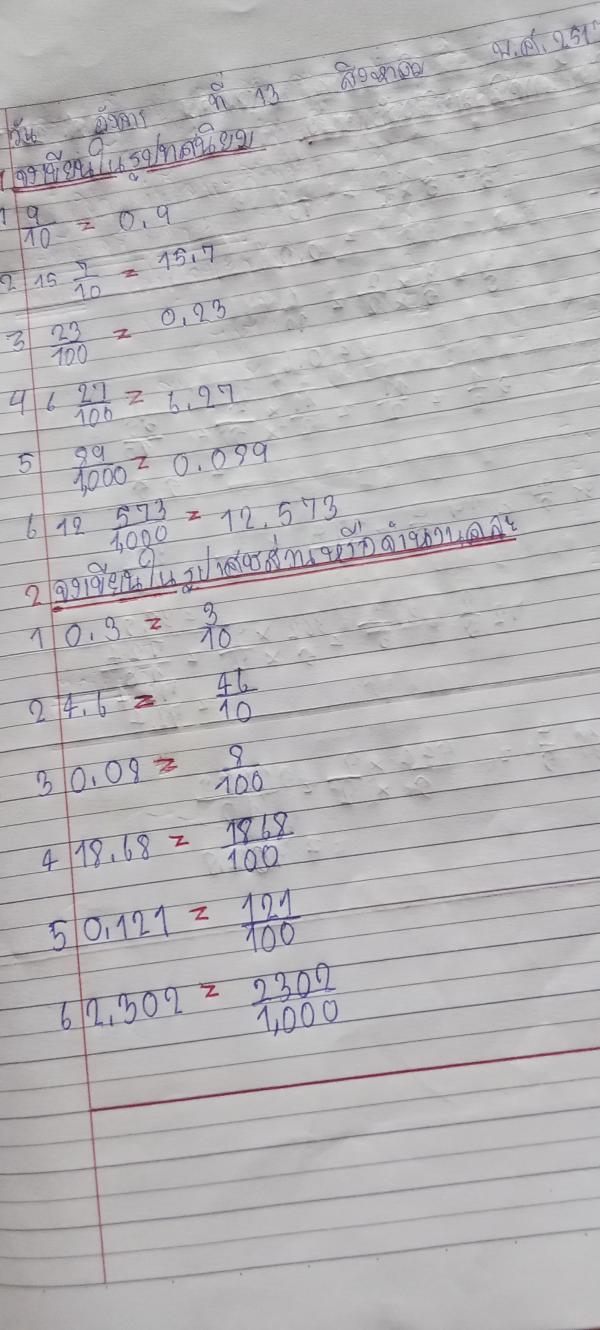 วัน อังคาร ที่ 13 สิงหาคม พ.ศ. 251
1 จงเขียนในรูปทศนิยม
1 9/10 = 0.9
2 15 7/10 = 15.7
3 23/100 = 0.23
4 6 27/100 = 6.27
5 99/1,000 = 0.099
6 12 573/1,000 = 12.573
2 จงเขียนในรูปเศษส่วนหรือจำนวนคละ
1 0.3 = 3/10
2 4.6 = 46/10
3 0.08 = 8/100
4 18.68 = 1868/100
5 0.121 = 121/100
6 2.302 = 2302/1,000